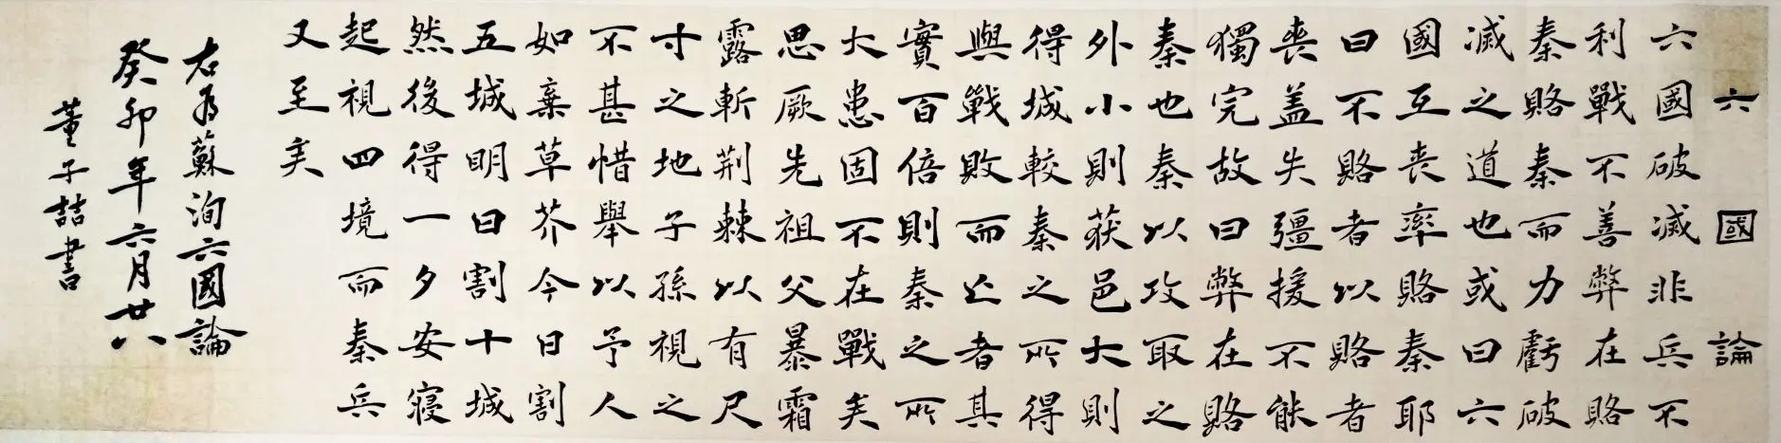 六國論
六國破滅非兵不
利戰不善弊在賂
秦賂秦而力虧破
滅之道也或曰六
國互喪率賂秦耶
曰不賂者以賂者
喪盖失彊援不能
獨完故曰弊在賂
秦也秦以攻取之
外小則获邑大則
得城較秦之所得
與戰敗而亾者其
實百倍則秦之所
大患固不在戰矣
思厥先祖父暴霜
露斬荆棘以有尺
寸之地子孫視之
不甚惜舉以予人
如棄草芥今日割
五城明日割十城
然後得一夕安寢
起視四境而秦兵
又至矣
右为蘇洵六國論
癸卯年六月廿八
董子詰書